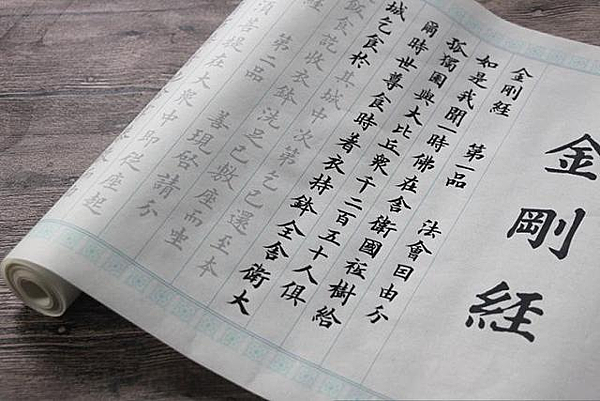 金剛経
金剛経 第一品 法會因由分
如是我聞一時佛在舍衛國祗樹給
孤獨園與大比丘眾千二百五十人俱
爾時世尊食時著衣持鉢全舍衛大
城乞食於其城中次第乞已還至本
飯食訖收衣鉢洗足已敷座而坐
経 第二品 善現启請分
須菩提在大眾中即從座起